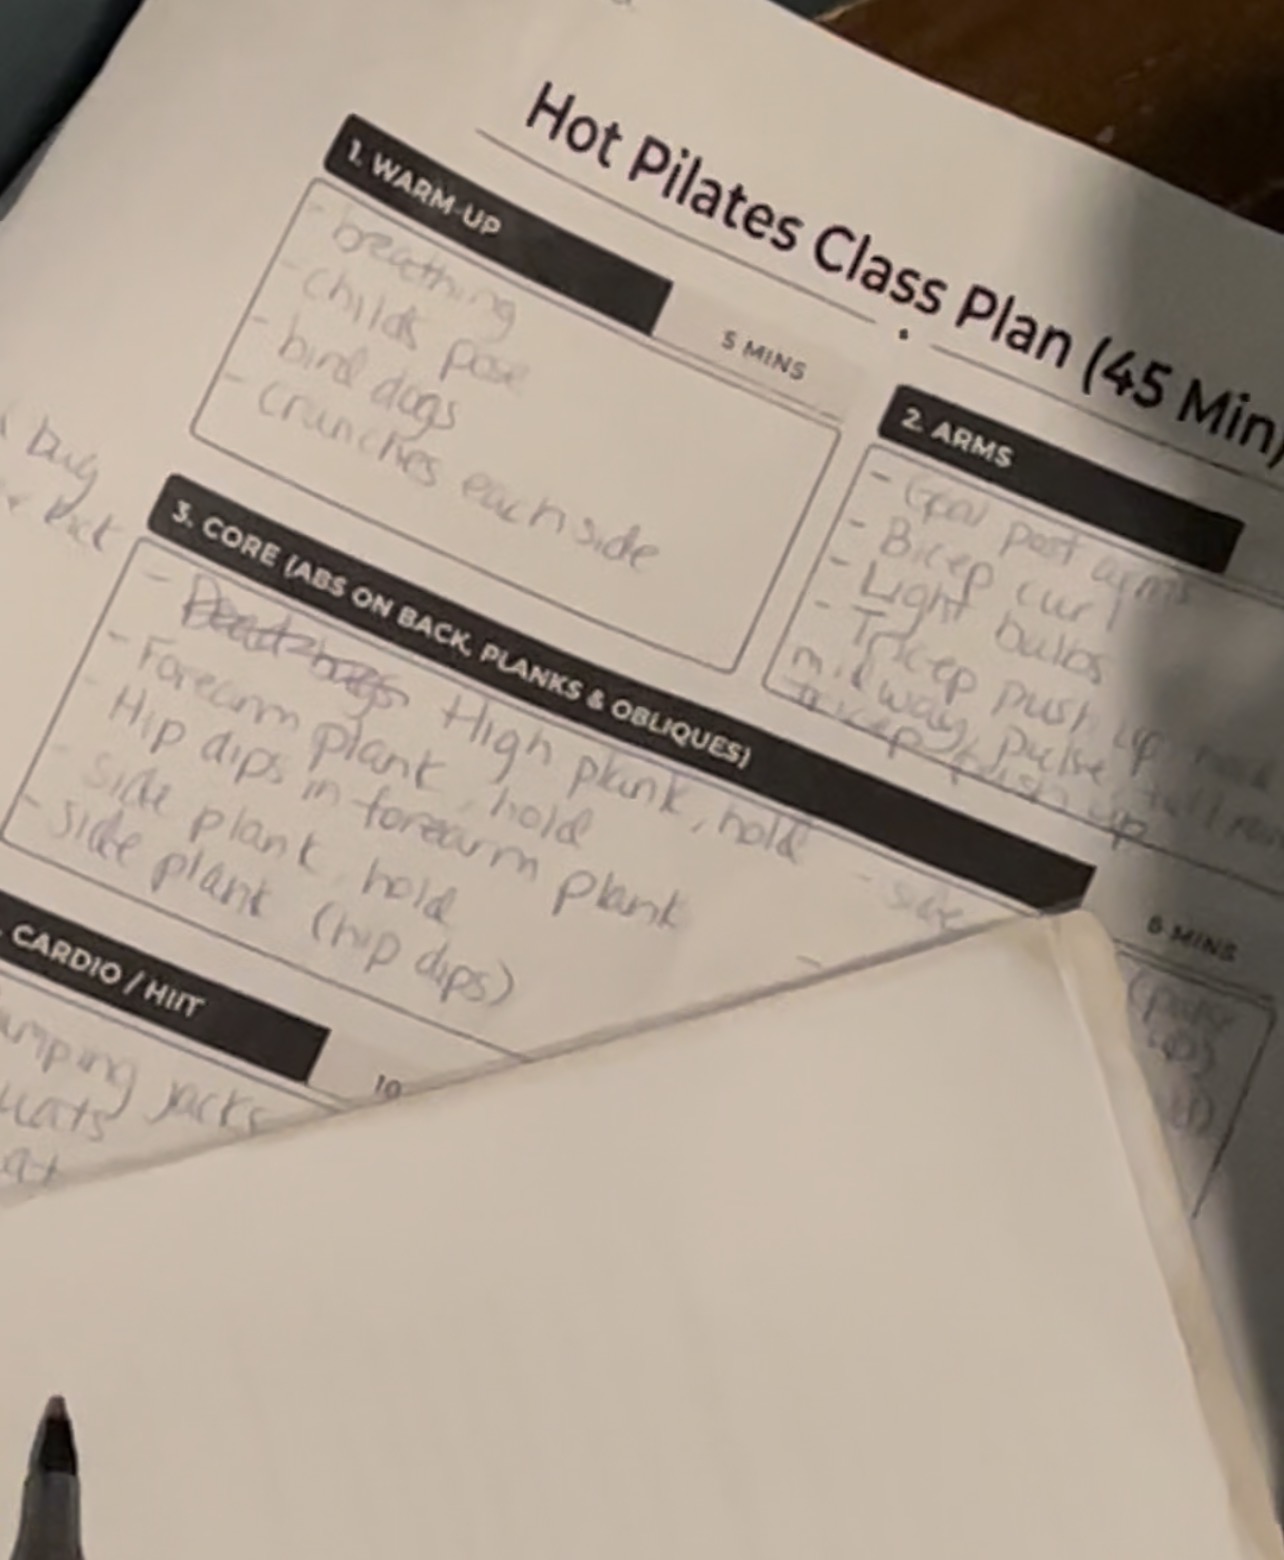 Hot Pilates Class Plan (45 Min)
1. WARM-UP
5 MINS
- breathing
- childs pose
- bird dogs
- crunches each side
2. ARMS
- Goal post arms
- Bicep curl
- Light bulbs
- Tricep push up
midway, pulse
tricep push up
bug
3. CORE (ABS ON BACK, PLANKS & OBLIQUES)
8 MINS
- High plank, hold
- Forearm plank, hold
- Hip dips in forearm plank
- side plank, hold
- side plank (hip dips)
- side
(pulse
CARDIO / HIIT
10
jacks